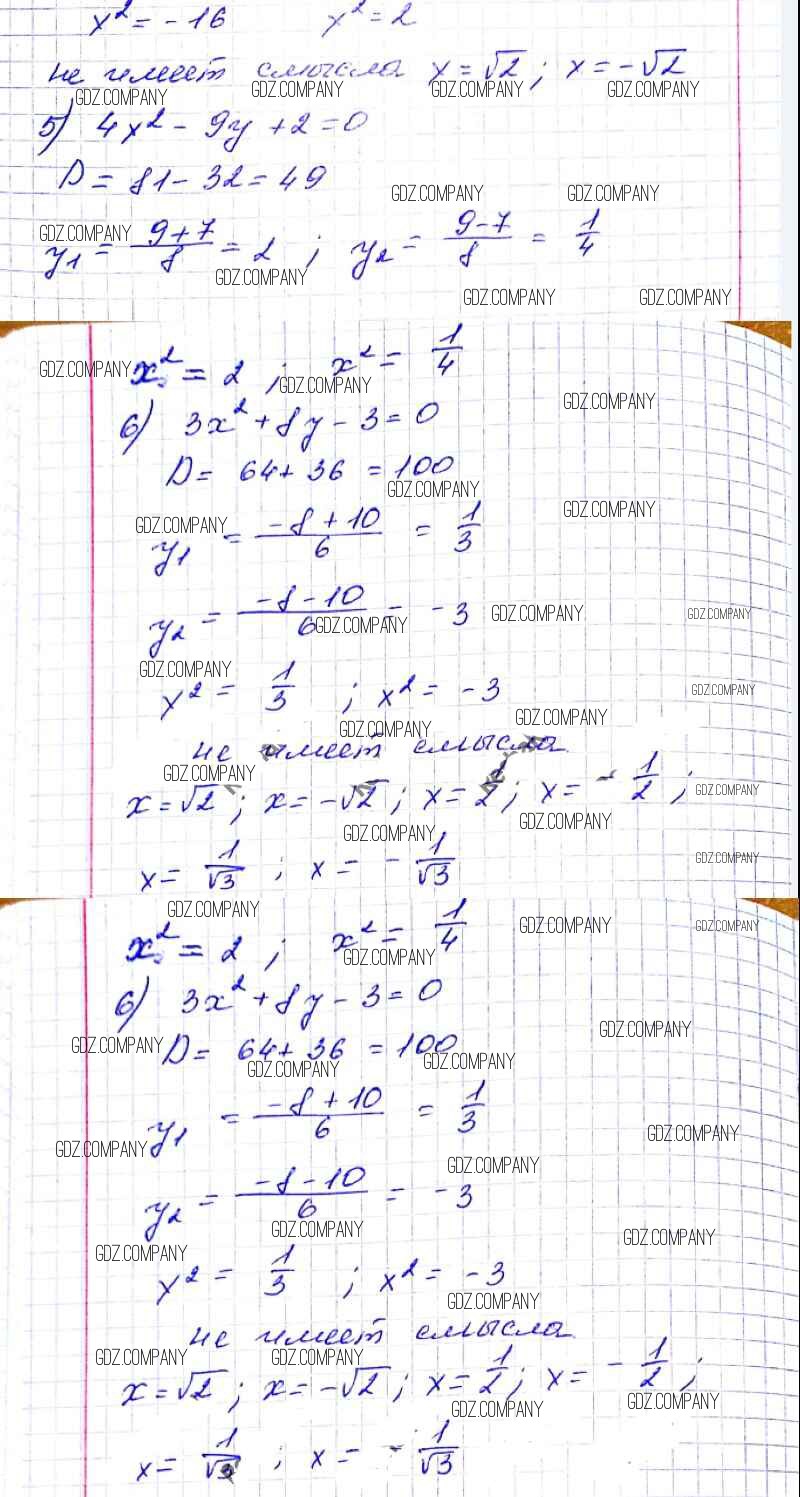 x² = -16 x² = 2
не имеет смысла x = √2 ; x = -√2
GDZ.COMPANY GDZ.COMPANY GDZ.COMPANY GDZ.COMPANY
5) 4x² - 9y + 2 = 0
D = 81 - 32 = 49
GDZ.COMPANY GDZ.COMPANY
GDZ.COMPANY
y₁ = (9+7)/8 = 2 ; y₂ = (9-7)/8 = 1/4
GDZ.COMPANY
GDZ.COMPANY GDZ.COMPANY
x² = 2 ; x² = 1/4
GDZ.COMPANY GDZ.COMPANY
GDZ.COMPANY
6) 3x² + 8y - 3 = 0
D = 64 + 36 = 100
GDZ.COMPANY
GDZ.COMPANY GDZ.COMPANY
y₁ = (-8+10)/6 = 1/3
y₂ = (-8-10)/6 = -3
GDZ.COMPANY GDZ.COMPANY GDZ.COMPANY
GDZ.COMPANY GDZ.COMPANY
x² = 1/3 ; x² = -3
GDZ.COMPANY GDZ.COMPANY
не имеет смысла
GDZ.COMPANY GDZ.COMPANY
x = √2 ; x = -√2 ; x = 1/2 ; x = -1/2 ;
GDZ.COMPANY GDZ.COMPANY
x = 1/√3 ; x = -1/√3
GDZ.COMPANY
GDZ.COMPANY GDZ.COMPANY GDZ.COMPANY
x² = 2 ; x² = 1/4
GDZ.COMPANY
6) 3x² + 8y - 3 = 0
GDZ.COMPANY GDZ.COMPANY
D = 64 + 36 = 100
GDZ.COMPANY GDZ.COMPANY
y₁ = (-8+10)/6 = 1/3
GDZ.COMPANY GDZ.COMPANY
GDZ.COMPANY
y₂ = (-8-10)/6 = -3
GDZ.COMPANY GDZ.COMPANY
GDZ.COMPANY
x² = 1/3 ; x² = -3
GDZ.COMPANY
не имеет смысла
GDZ.COMPANY GDZ.COMPANY
x = √2 ; x = -√2 ; x = 1/2 ; x = -1/2 ;
GDZ.COMPANY GDZ.COMPANY
x = 1/√3 ; x = -1/√3